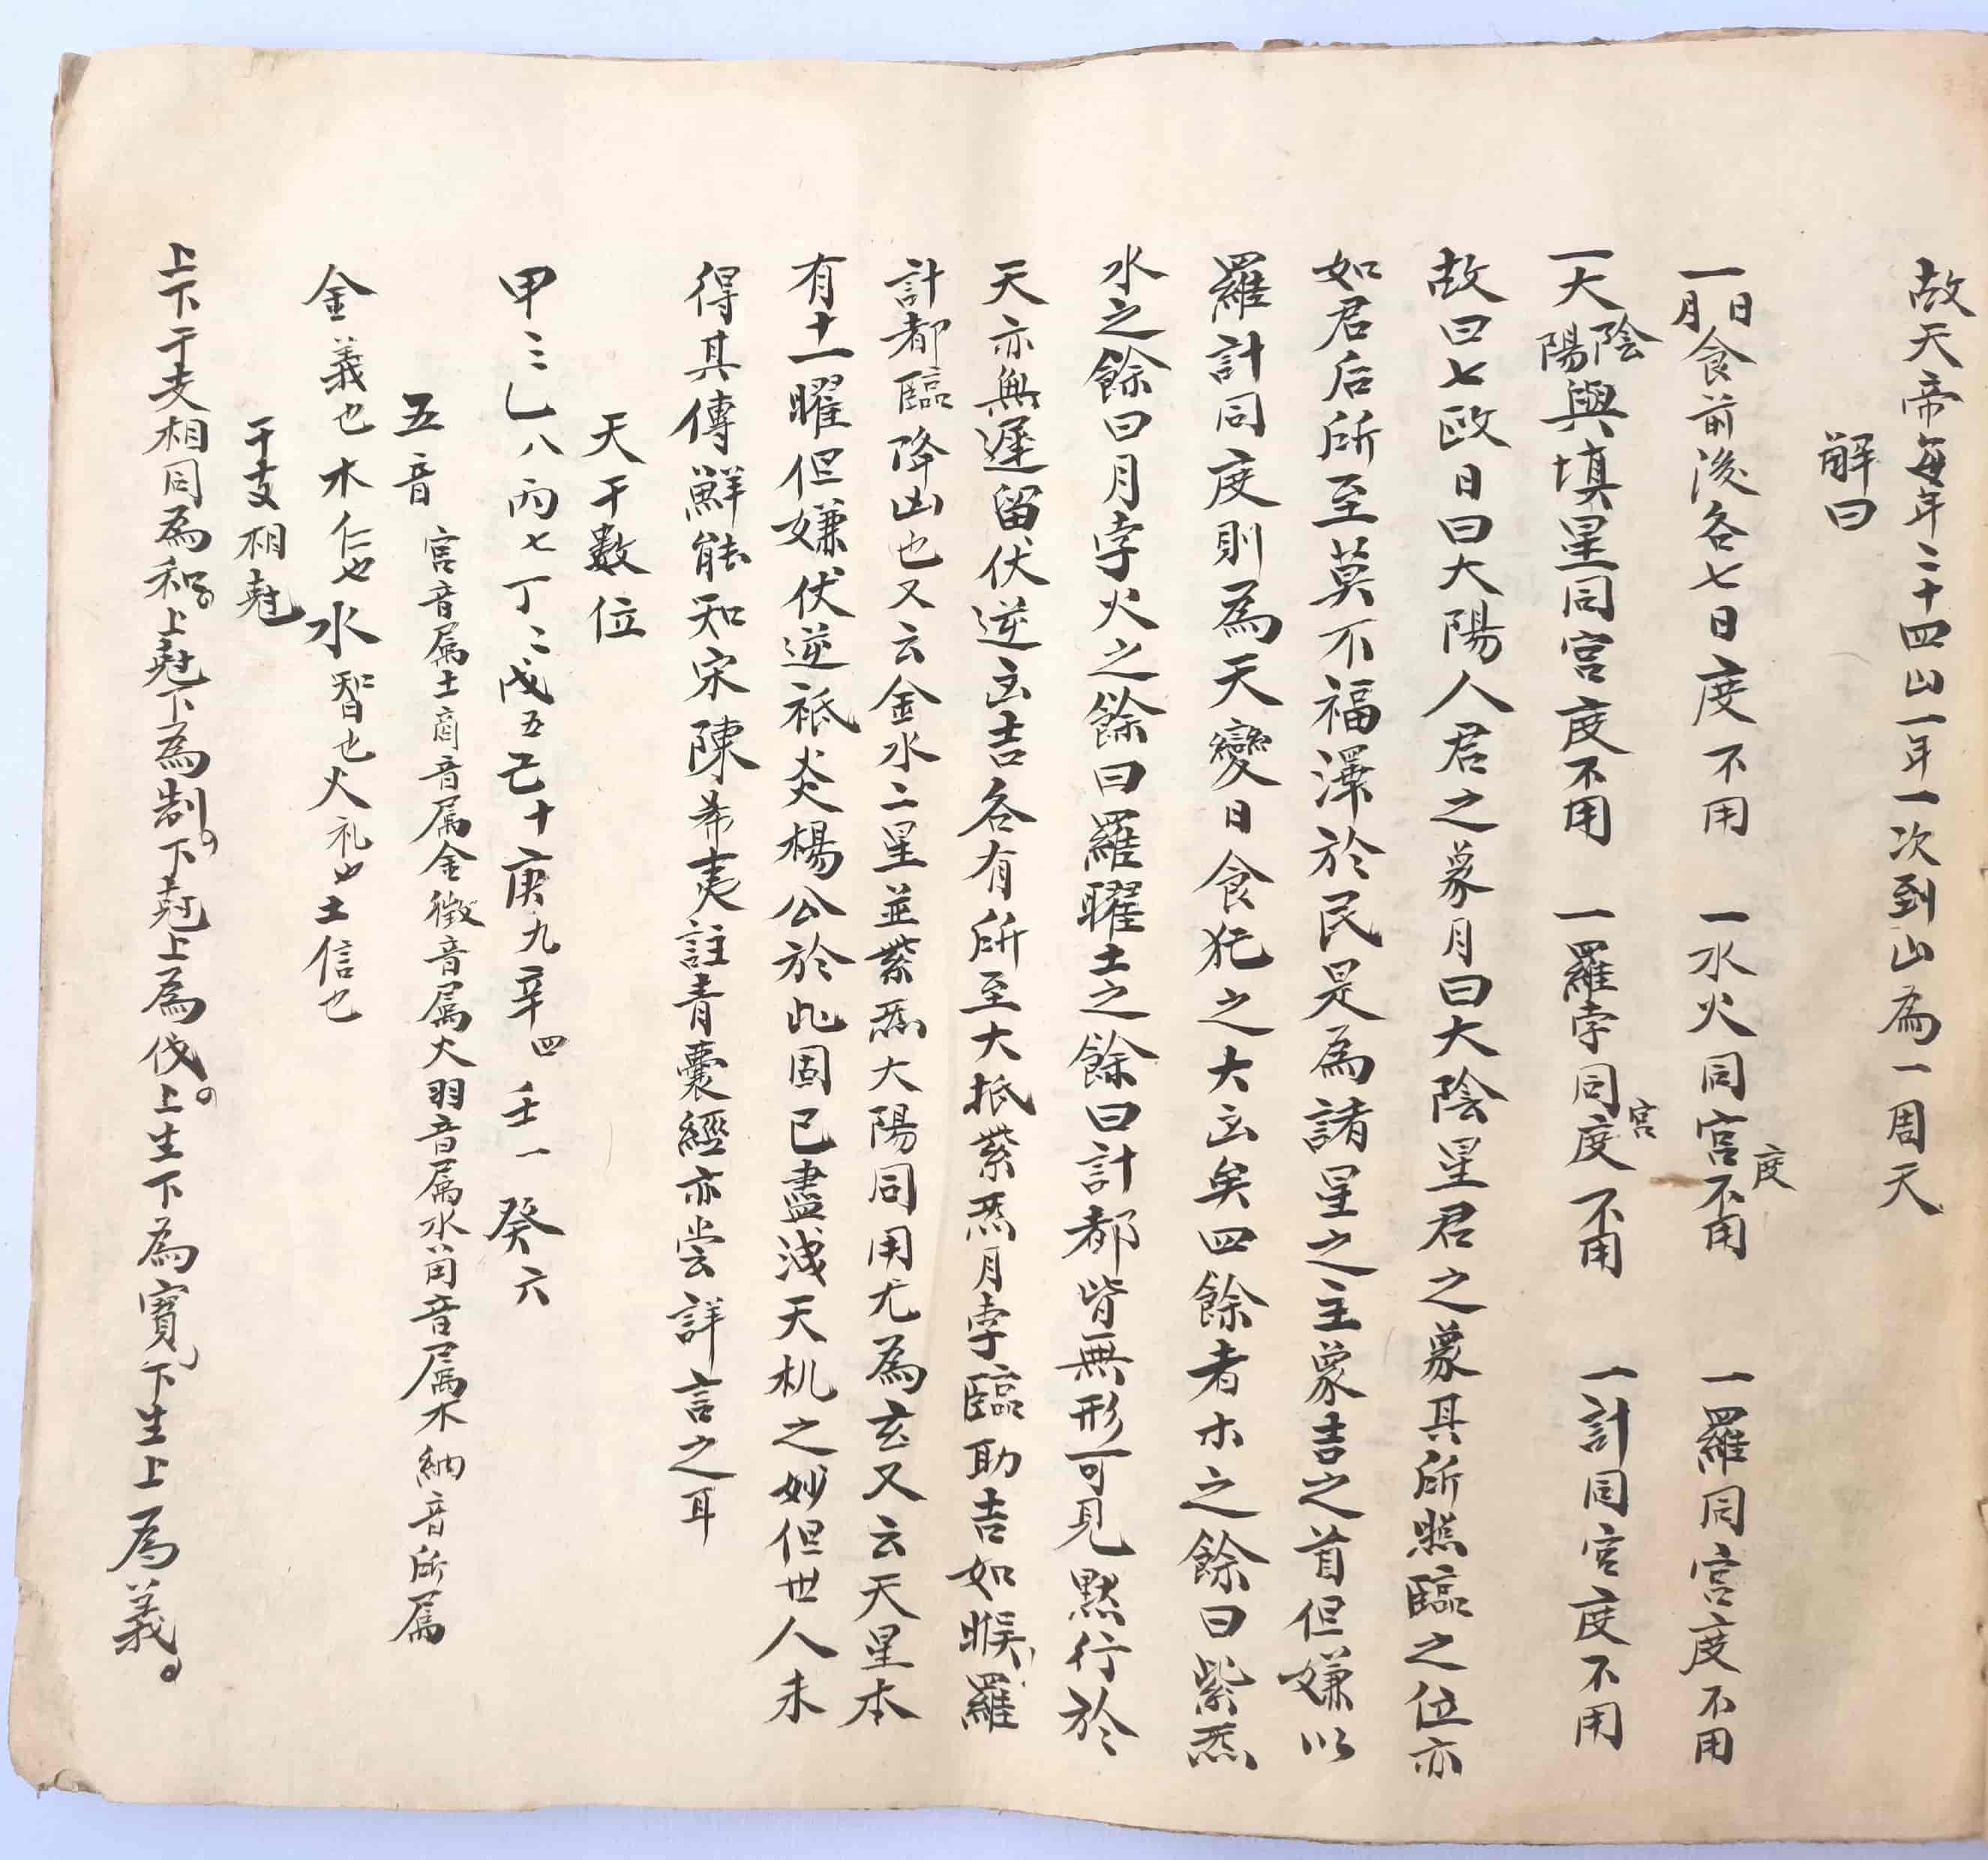 故天帝每年二十四山一年一次到山為一周天
解曰
一日月食前後各七日度不用 一水火同宮度不用 一羅同宮度不用
一大陰陽與填星同宮度不用 一羅孛同宮度不用 一計同宮度不用
故曰七政日曰大陽人君之象月曰大陰星君之象其所照臨之位亦
如君后所至莫不福澤於民是為諸星之主象吉之首但嫌以
羅計同度則為天變日食犯之大凶矣四餘者木之餘曰紫炁
水之餘曰月孛火之餘曰羅曜土之餘曰計都皆無形可見黙行於
天亦無遲留伏逆凶吉各有所至大抵紫炁月孛臨助吉如睺羅
計都臨降凶也又云金水二星並紫炁大陽同用尤為玄又云天星本
有十一曜但嫌伏逆祗炎楊公於此固已盡洩天机之妙但世人未
得其傳鮮能知宋陳希夷註青囊經亦尝詳言之耳
天干數位
甲三乙八丙七丁二戊五己十庚九辛四壬一癸六
五音 宮音属土商音属金徵音属火羽音属水角音属木納音所属
金義也木仁也水智也火礼也土信也
干支相尅
上下干支相同為和。上尅下為制。下尅上為伐。上生下為寳、下生上為義。